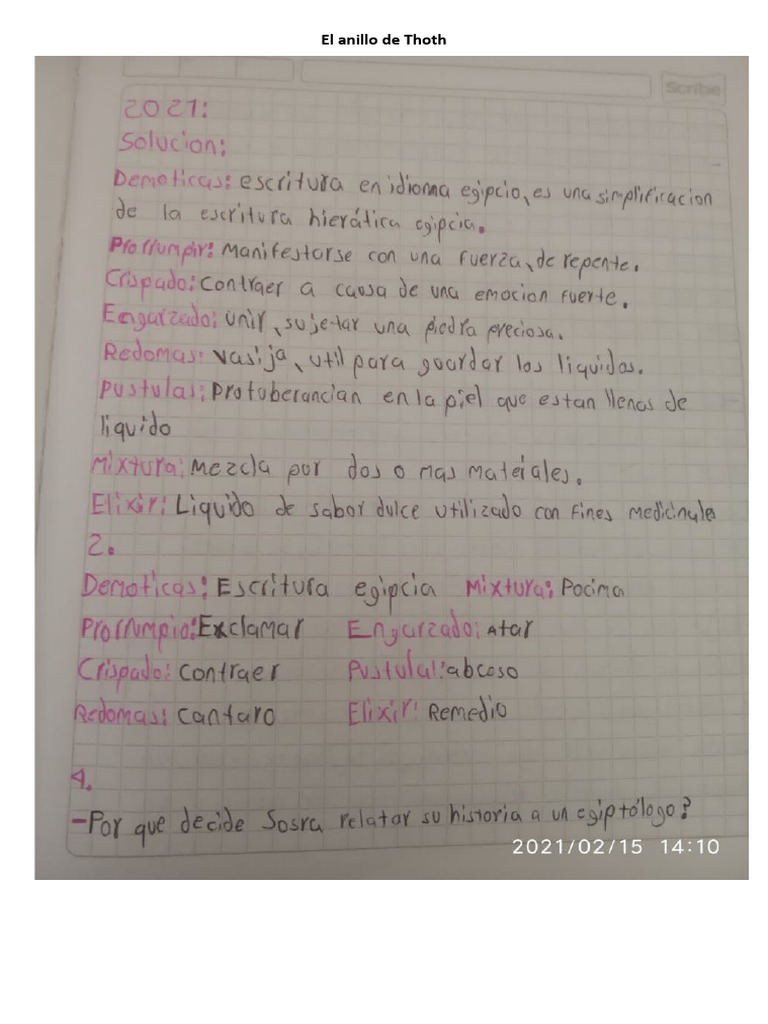 El anillo de Thoth
Scribe
2021:
Solucion:
Demoticas: escritura en idioma egipcio, es una simplificacion
de la escritura hierática egipcia.
Prorrumpir: Manifestarse con una fuerza, de repente.
Crispado: Contraer a causa de una emocion fuerte.
Engarzado: unir, sujetar una piedra preciosa.
Redomas: vasija, util para guardar los liquidos.
Pustulas: Protuberancian en la piel que estan llenas de
liquido
Mixtura: Mezcla por dos o mas mateiales.
Elixir: Liquido de sabor dulce utilizado con fines medicinale
2.
Demoticas: Escritura egipcia Mixtura: Pocima
Prorrumpio: Exclamar Engarzado: Atar
Crispado: Contraer Pustula: abceso
Redomas: Cantaro Elixir: Remedio
4.
-Por que decide Sosra relatar su historia a un egiptólogo?
2021/02/15 14:10